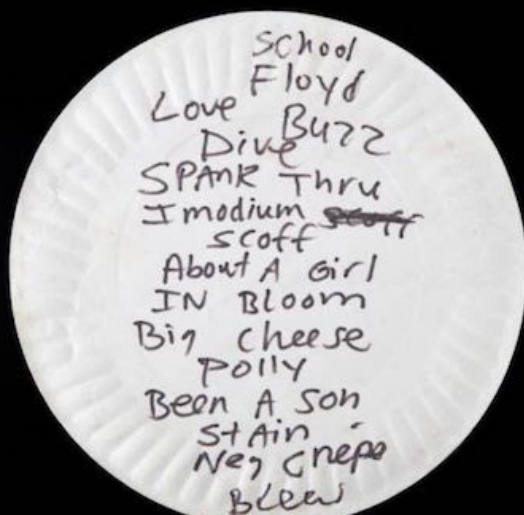 School
Floyd
Love Buzz
Dive
SPANK Thru
Imodium
scoff
About A Girl
IN Bloom
Big Cheese
Polly
Been A Son
StAin
Neg Crepe
Blew